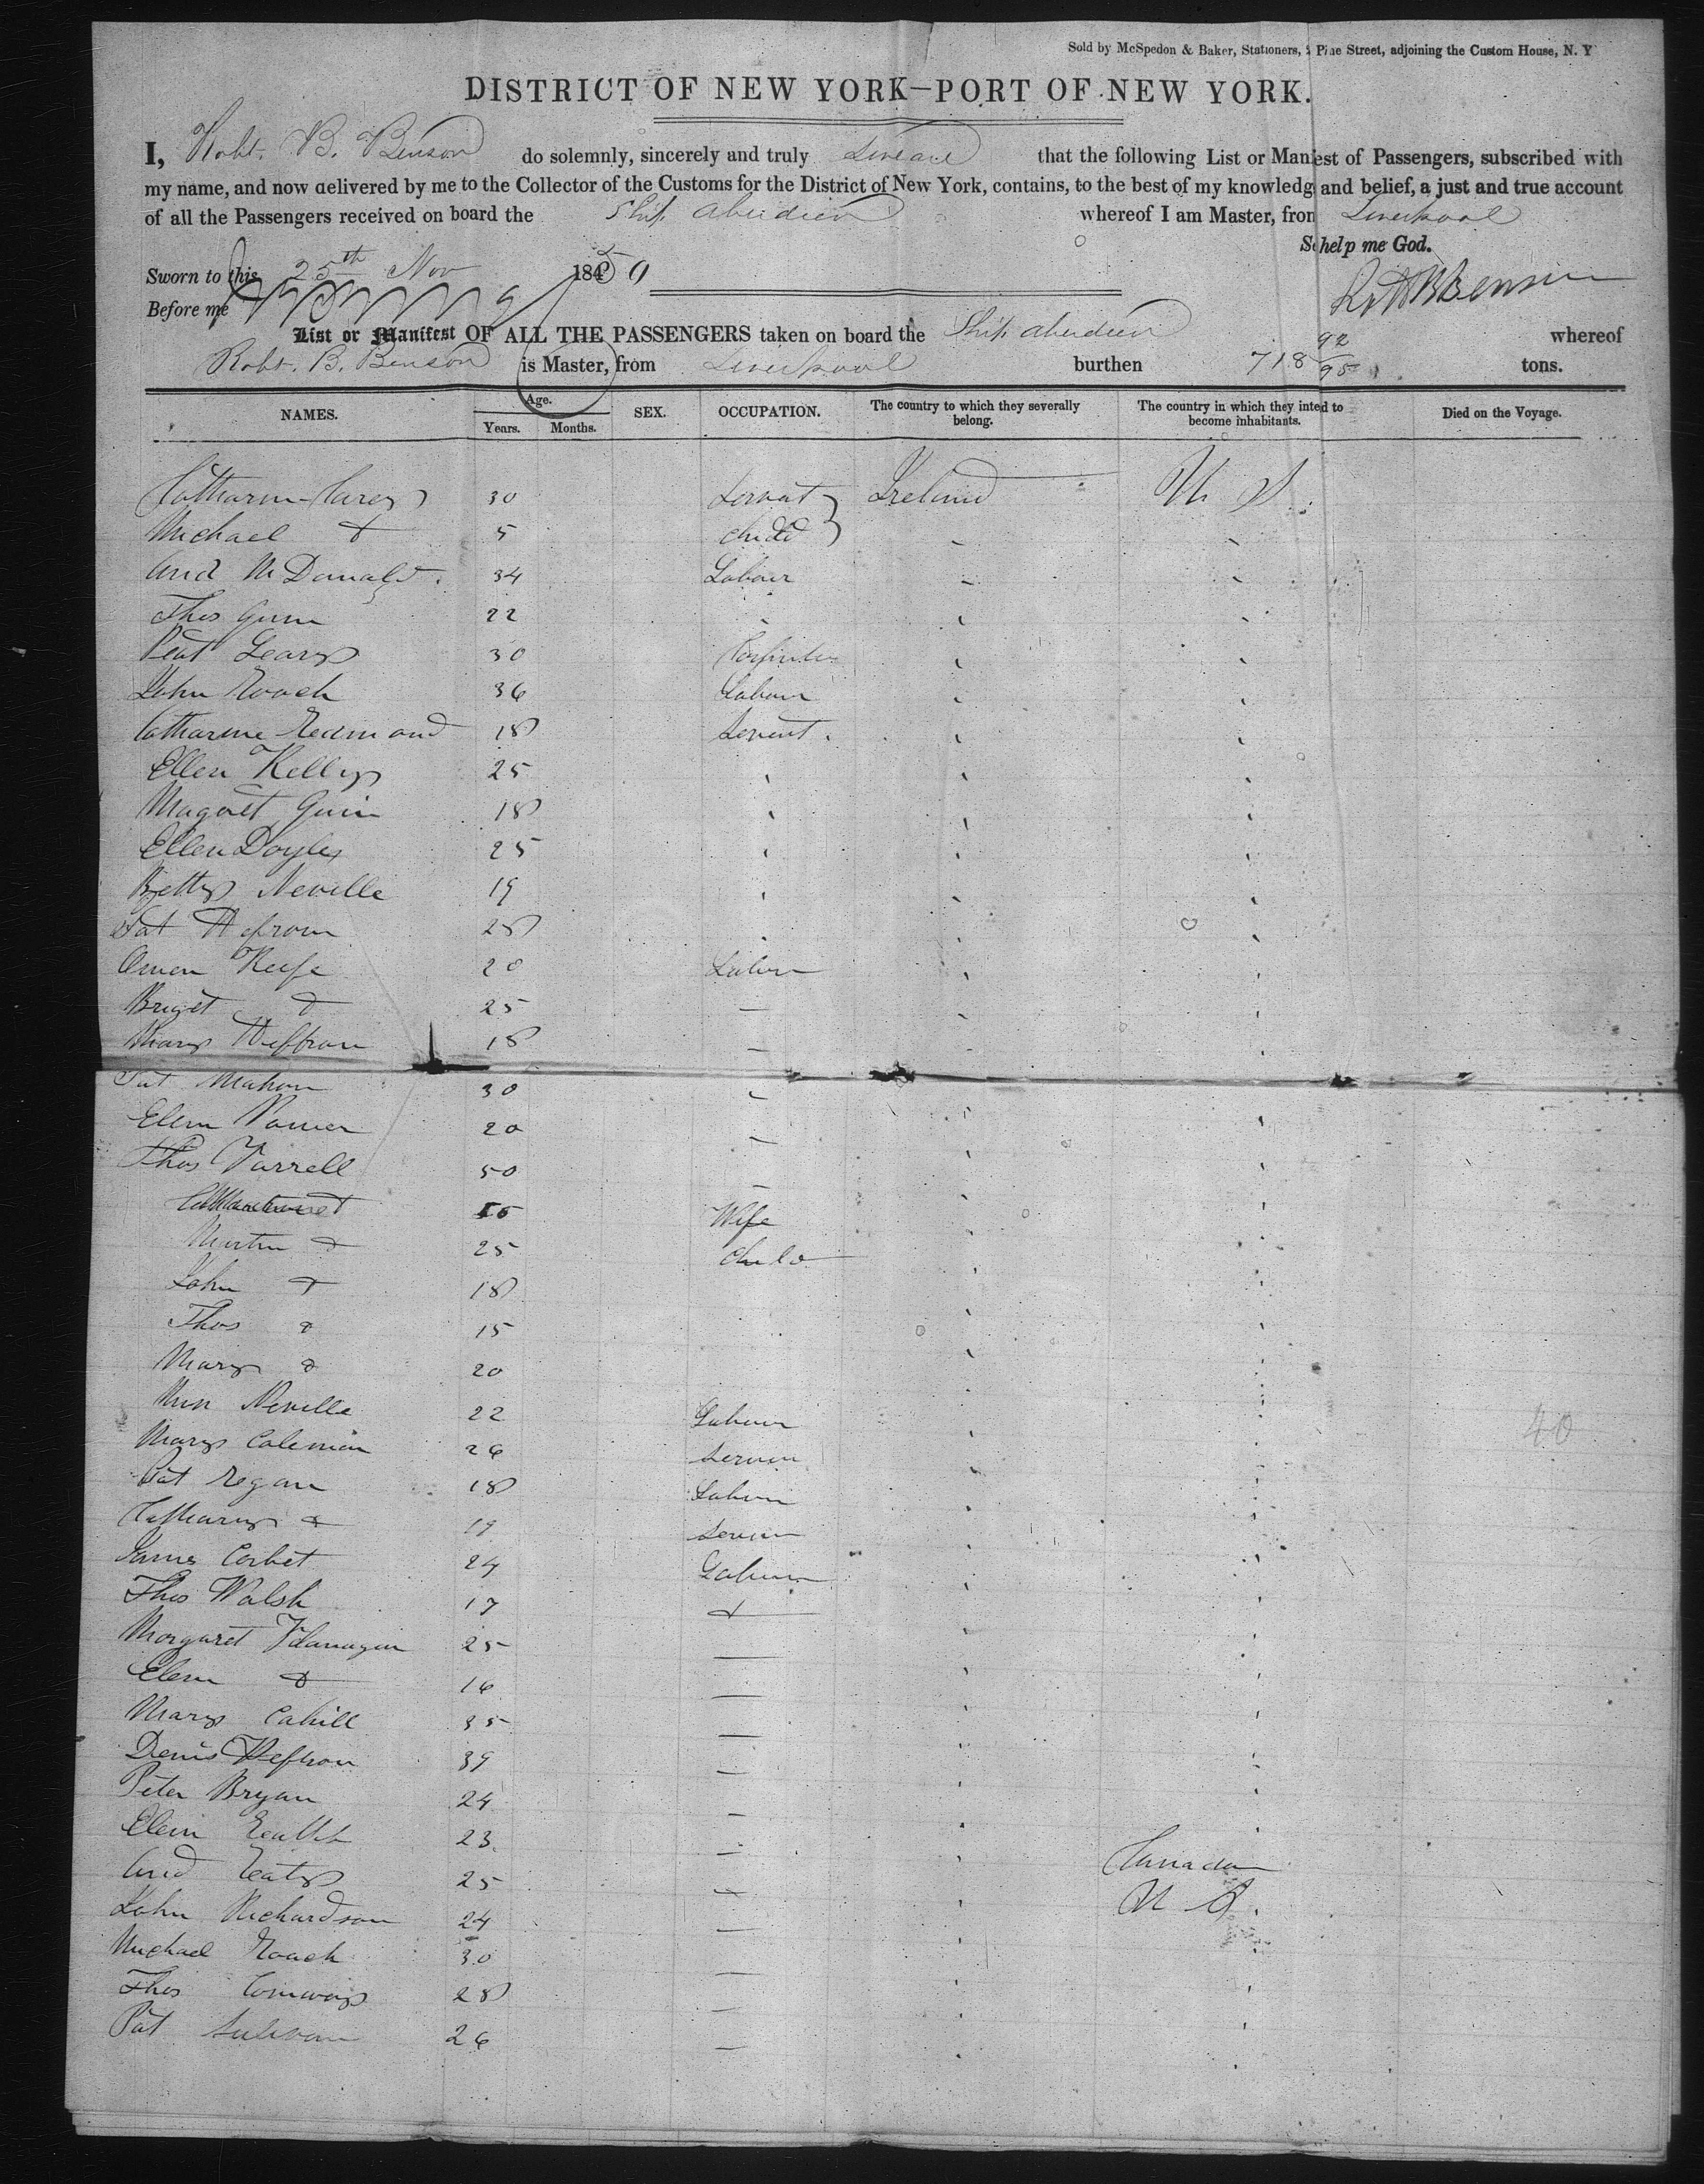 Sold by McSpedon & Baker, Stationers, Pine Street, adjoining the Custom House, N. Y
DISTRICT OF NEW YORK—PORT OF NEW YORK.
I, Robt. B. Benson do solemnly, sincerely and truly Swear that the following List or Manifest of Passengers, subscribed with
my name, and now delivered by me to the Collector of the Customs for the District of New York, contains, to the best of my knowledge and belief, a just and true account
of all the Passengers received on board the Ship Aberdeen whereof I am Master, from Liverpool
So help me God.
Sworn to this 25th Nov 1850
Robt B Benson
Before me
List or Manifest OF ALL THE PASSENGERS taken on board the Ship Aberdeen whereof
Robt. B. Benson is Master, from Liverpool burthen 718 92/95 tons.
NAMES. Age. SEX. OCCUPATION. The country to which they severally The country in which they inted to Died on the Voyage.
Years. Months. belong. become inhabitants.
Catharin Carey 30 Servat Ireland U S
Michael 5 child
And McDonald 34 Labour
Thos Gunn 22
Peat Leary 30
John Roach 36 Labour
Catharine Redmond 18 Servent.
Ellen Kelly 25
Magaret 18
Ellen Doyle 25
Betty Neville 19
Pat 28
Owen Keefe 20 Labour
Briget 25
Mary Heffron 18
Pat Mahon 30
Elen Power 20
Thos Farrell 50
Wife
Martin 25 child
John 18
Thos 15
Mary 20
Ann Neville 22 Labour
Mary Coleman 26 Servan
Pat Regan 18 Labour
19 Servan
James Corbet 24 Labour
Thos Walsh 17
Margaret Flanagan 25
Elen 16
Mary Cahill 35
Denis Heffron 39
Peter Bryan 24
23 Canada
And 25 U S.
John Richardson 24
Michael Roach 30
Thos Conway 28
Pat Sulivan 26
40